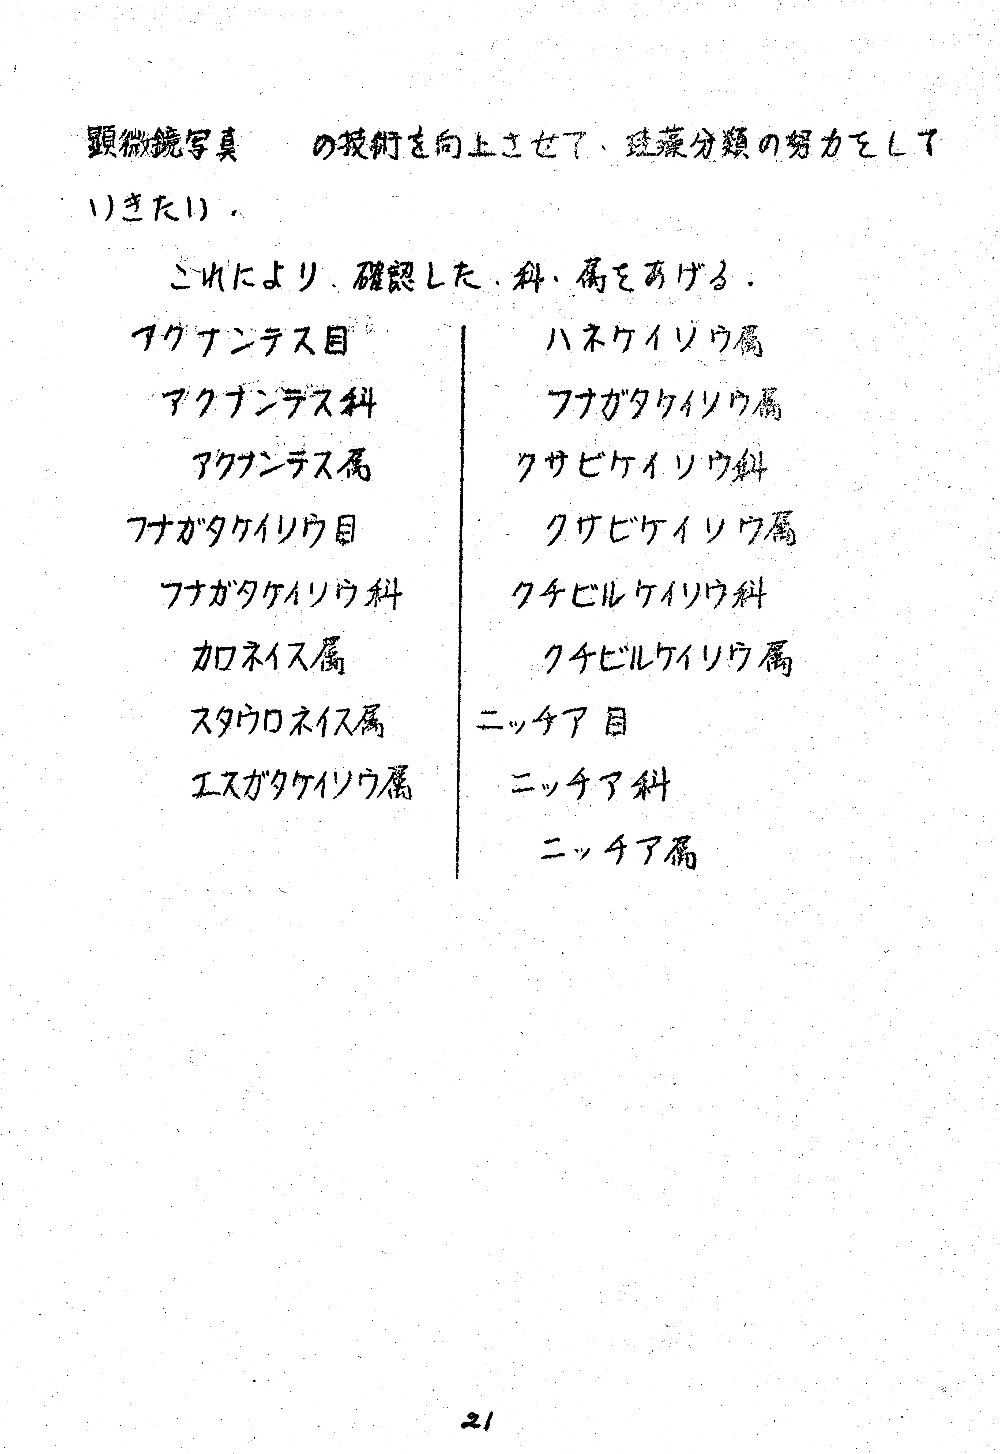 顕微鏡写真　の技術を向上させて、珪藻分類の努力をして
いきたい.
これにより、確認した、科、属をあげる.
アクナンテス目
アクナンテス科
アクナンテス属
フナガタケイソウ目
フナガタケイソウ科
カロネイス属
スタウロネイス属
エスガタケイソウ属
ハネケイソウ属
フナガタケイソウ属
クサビケイソウ科
クサビケイソウ属
クチビルケイソウ科
クチビルケイソウ属
ニッチア目
ニッチア科
ニッチア属
21